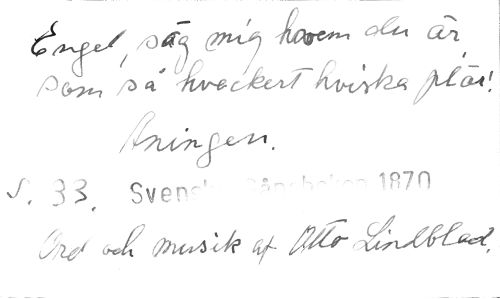 Engel, säg mig hvem du är,
som så hvackert hviska plär!
Aningen.
S. 33. Svenska Sångboken 1870
Ord och musik af Otto Lindblad.